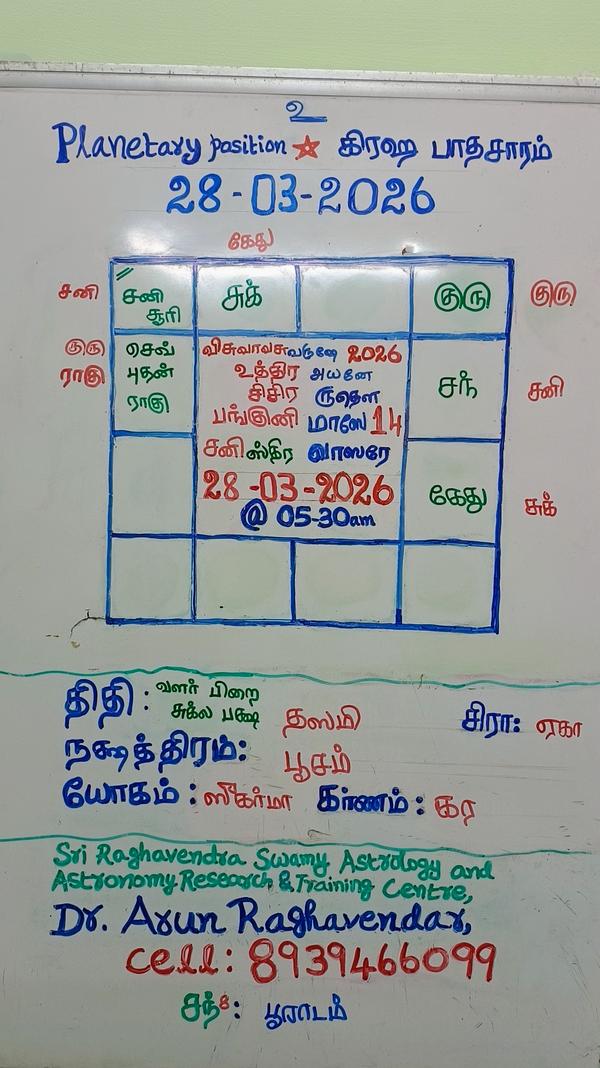 உ
Planetary position ☆ கிரஹ பாதசாரம்
28-03-2026
கேது
சனி
சனி
சூரி
சுக்
குரு
குரு
குரு
ராகு
செவ்
புதன்
ராகு
விசுவாவசுவருஷே 2026
உத்திர அயனே
சிசிர ருதௌ
பங்குனி மாஸே 14
சனி ஸ்திர வாஸரே
28-03-2026
@ 05-30am
சந்
சனி
கேது
சுக்
திதி : வளர் பிறை
சுக்ல பக்ஷ
தஸமி
சிரா: ஏகா
நக்ஷத்திரம்: பூசம்
யோகம் : ஸுகர்மா கர்ணம் : கர
Sri Raghavendra Swamy Astrology and
Astronomy Research & Training Centre,
Dr. Arun Raghavendar,
Cell: 8939466099
சந்8: பூராடம்